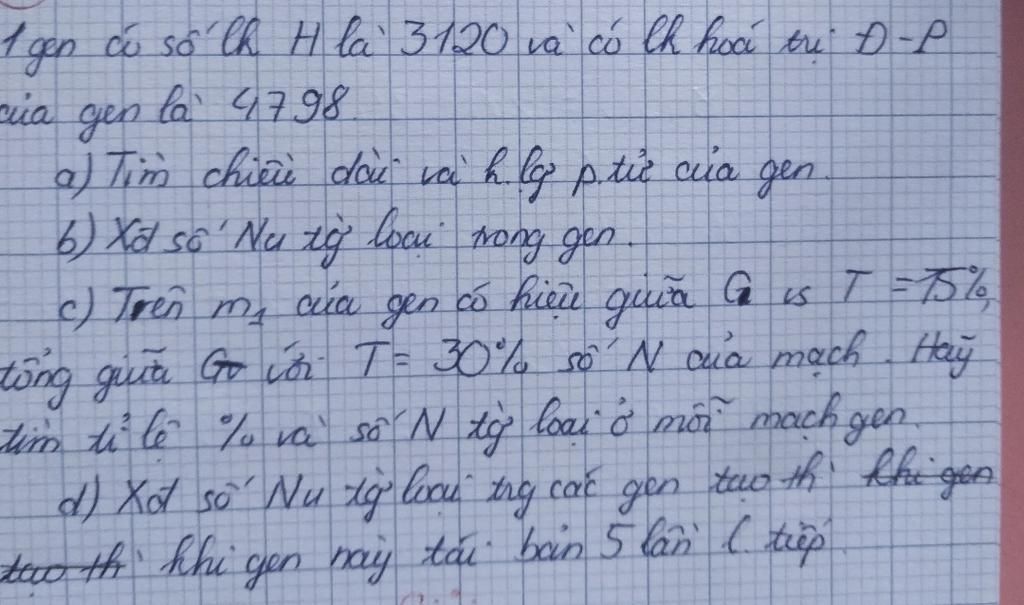 1 gen có số lk H là 3120 và có lk hoá trị Đ-P
của gen là 4798
a) Tìm chiều dài và k.lg p.tử của gen.
b) Xđ số Nu tg loại trong gen.
c) Trên m₁ của gen có hiệu giữa G vs T = 15%,
tổng giữa G với T = 30% số N của mạch. Hãy
tìm tỉ lệ % và số N tg loại ở mỗi mạch gen.
d) Xđ số Nu tg loại trg các gen tạo th' khi gen
tạo th' khi gen này tái bản 5 lần l. tiếp